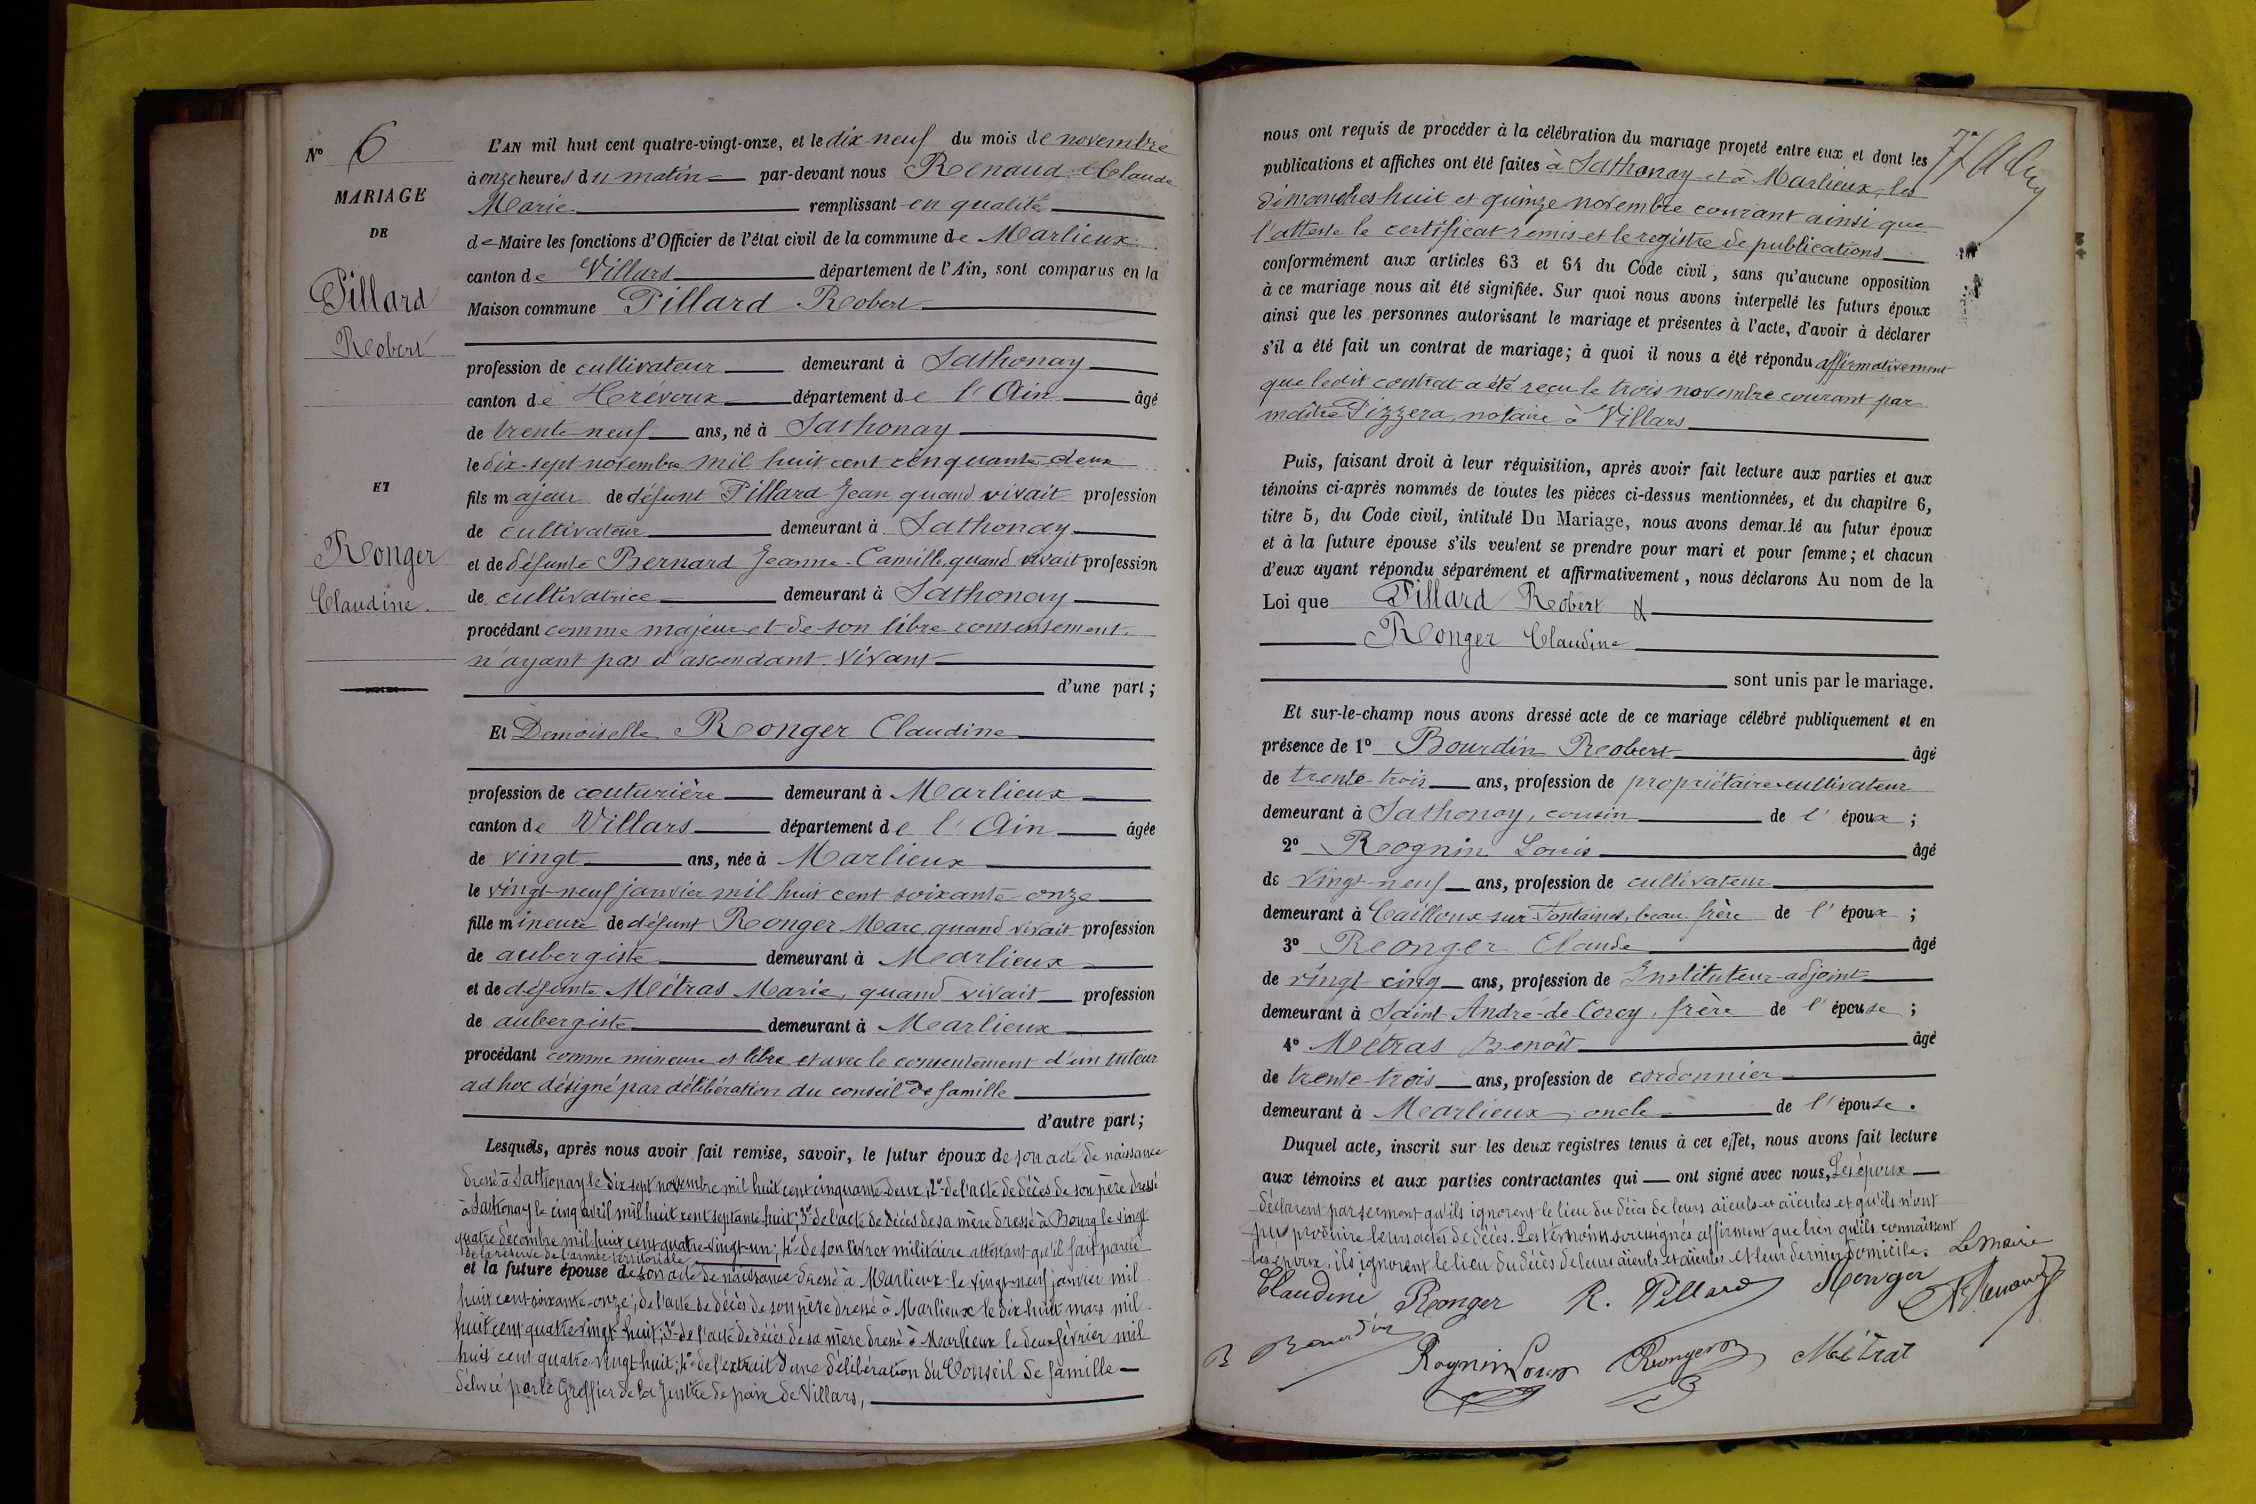 N° 6
MARIAGE
DE
Pillard
Robert
ET
Ronger
Claudine.
L'AN mil huit cent quatre-vingt-onze, et le dix-neuf du mois de novembre
à onze heures du matin par-devant nous Renaud Claude
Marie remplissant en qualité
de Maire les fonctions d'Officier de l'état civil de la commune de Marlieux
canton de Villars département de l'Ain, sont comparus en la
Maison commune Pillard Robert
profession de cultivateur demeurant à Sathonay
canton de Trévoux département de l'Ain âgé
de trente-neuf ans, né à Sathonay
le dix-sept novembre mil huit cent cinquante-deux
fils majeur de défunt Pillard Jean quand vivait profession
de cultivateur demeurant à Sathonay
et de défunte Bernard Jeanne-Camille, quand vivait profession
de cultivatrice demeurant à Sathonay
procédant comme majeur et de son libre consentement.
n'ayant pas d'ascendant vivant
d'une part;
Et Demoiselle Ronger Claudine
profession de couturière demeurant à Marlieux
canton de Villars département de l'Ain âgée
de vingt ans, née à Marlieux
le vingt-neuf janvier mil huit cent soixante-onze
fille mineure de défunt Ronger Marc, quand vivait profession
de aubergiste demeurant à Marlieux
et de défunte Métras Marie, quand vivait profession
de aubergiste demeurant à Marlieux
procédant comme mineure et libre et avec le consentement d'un tuteur
ad hoc désigné par délibération du conseil de famille
d'autre part;
Lesquels, après nous avoir fait remise, savoir, le futur époux de son acte de naissance
dressé à Sathonay le dix sept novembre mil huit cent cinquante-deux, 2° de l'acte de décès de son père dressé
à Sathonay le cinq avril mil huit cent septante huit; 3° de l'acte de décès de sa mère dressé à Bourg le vingt
quatre décembre mil huit cent quatre-vingt-un; 4° de son livret militaire attestant qu'il fait partie
de la réserve de l'armée territoriale
et la future épouse de son acte de naissance dressé à Marlieux le vingt-neuf janvier mil
huit cent soixante-onze; de l'acte de décès de son père dressé à Marlieux le dix-huit mars mil
huit cent quatre vingt huit; 3° de l'acte de décès de sa mère dressé à Marlieux le deux février mil
huit cent quatre vingt huit; 4° de l'extrait d'une délibération du Conseil de famille
délivré par le Greffier de la Justice de paix de Villars,
nous ont requis de procéder à la célébration du mariage projeté entre eux et dont les
publications et affiches ont été faites à Sathonay et à Marlieux, les
dimanches huit et quinze novembre courant ainsi que
l'atteste le certificat remis et le registre de publications
conformément aux articles 63 et 64 du Code civil, sans qu'aucune opposition
à ce mariage nous ait été signifiée. Sur quoi nous avons interpellé les futurs époux
ainsi que les personnes autorisant le mariage et présentes à l'acte, d'avoir à déclarer
s'il a été fait un contrat de mariage; à quoi il nous a été répondu affirmativement
que ledit contrat a été reçu le trois novembre courant par
maître Pizzera, notaire à Villars
Puis, faisant droit à leur réquisition, après avoir fait lecture aux parties et aux
témoins ci-après nommés de toutes les pièces ci-dessus mentionnées, et du chapitre 6,
titre 5, du Code civil, intitulé Du Mariage, nous avons demandé au futur époux
et à la future épouse s'ils veulent se prendre pour mari et pour femme; et chacun
d'eux ayant répondu séparément et affirmativement, nous déclarons Au nom de la
Loi que Pillard Robert &
Ronger Claudine
sont unis par le mariage.
Et sur-le-champ nous avons dressé acte de ce mariage célébré publiquement et en
présence de 1° Bourdin Robert âgé
de trente-trois ans, profession de propriétaire-cultivateur
demeurant à Sathonay, cousin de l'époux;
2° Rognin Louis âgé
de vingt-neuf ans, profession de cultivateur
demeurant à Cailloux sur Fontaines, beau-frère de l'époux;
3° Ronger Claude âgé
de vingt cinq ans, profession de Instituteur-adjoint
demeurant à Saint-André-de-Corcy, frère de l'épouse;
4° Métras Benoît âgé
de trente-trois ans, profession de cordonnier
demeurant à Marlieux, oncle de l'épouse.
Duquel acte, inscrit sur les deux registres tenus à cet effet, nous avons fait lecture
aux témoins et aux parties contractantes qui ont signé avec nous, Les époux
déclarent par serment qu'ils ignorent le lieu du décès de leurs aïeuls et aïeules et qu'ils n'ont
pu produire leurs actes de décès. Les témoins soussignés affirment que bien qu'ils connaissent
les époux, ils ignorent le lieu du décès de leurs aïeuls et aïeules et leur dernier domicile. Le maire
Claudine Ronger R. Pillard Ronger Renaud
B Bourdin Rognin Louis Ronger Métras